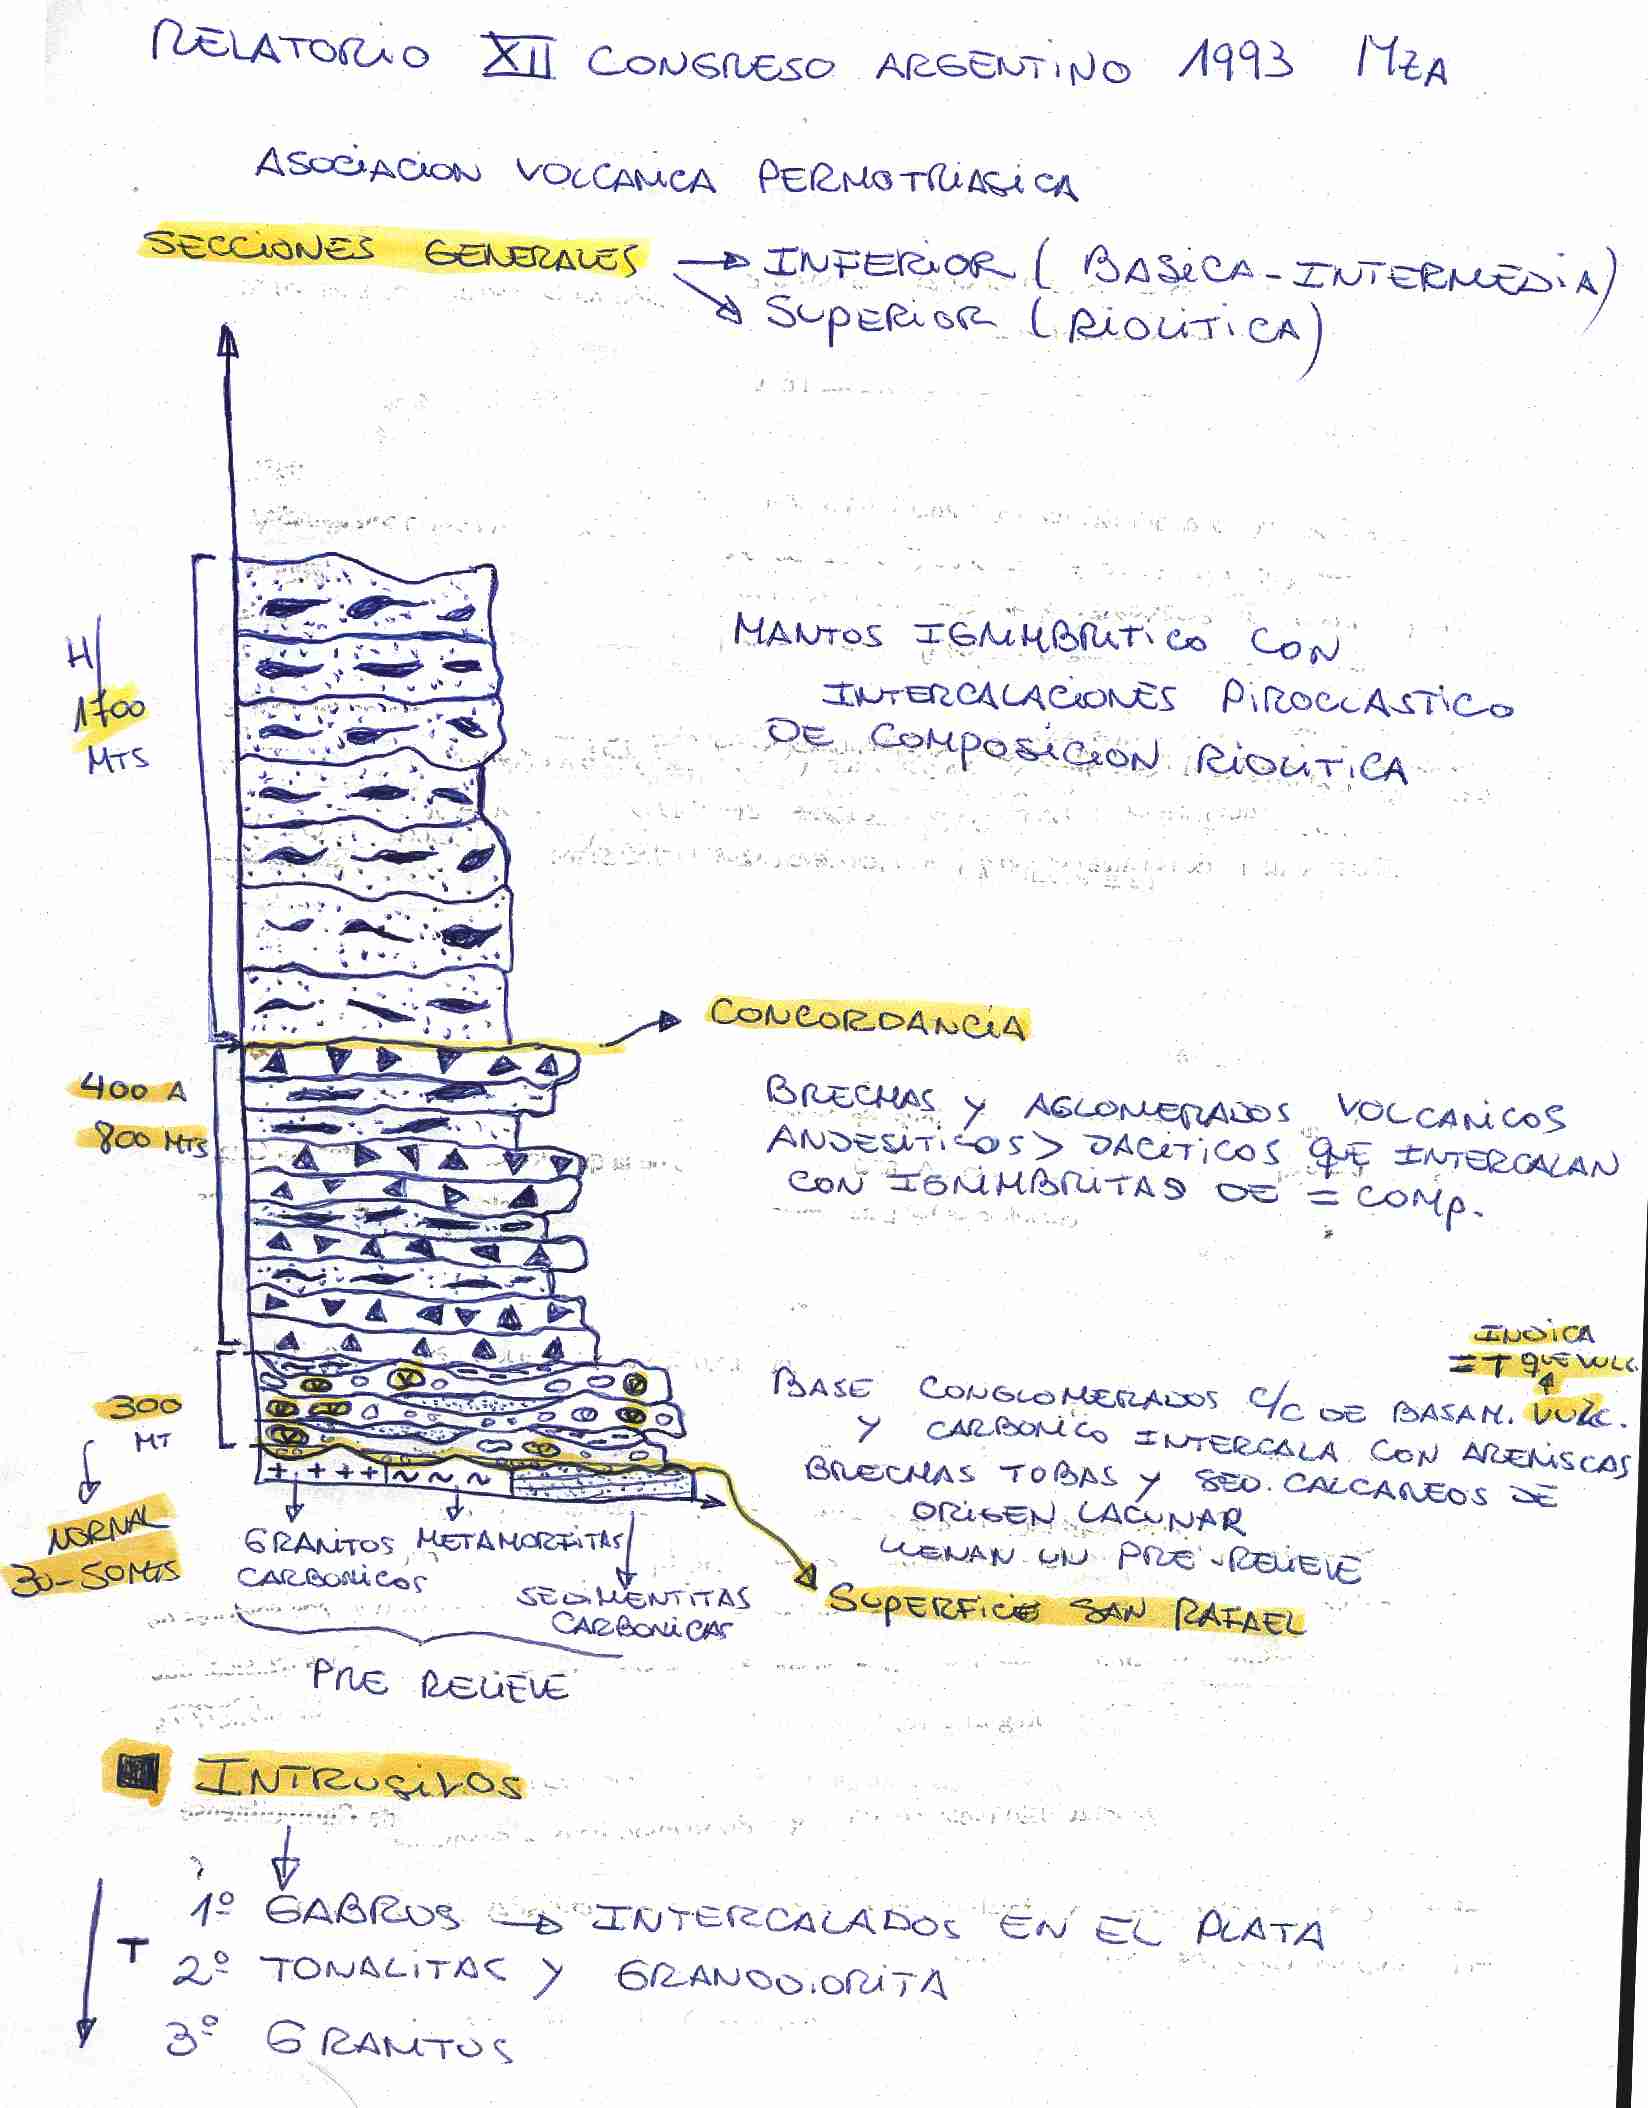 RELATORIO XII CONGRESO ARGENTINO 1993 MZA
ASOCIACION VOLCANICA PERMOTRIASICA
SECCIONES GENERALES → INFERIOR (BASICA-INTERMEDIA)
SUPERIOR (RIOLITICA)
H/
1700
MTS
MANTOS IGNIMBRITICO CON
INTERCALACIONES PIROCLASTICO
DE COMPOSICION RIOLITICA
CONCORDANCIA
400 A
800 MTS
BRECHAS Y AGLOMERADOS VOLCANICOS
ANDESITICOS > DACITICOS QUE INTERCALAN
CON IGNIMBRITAS DE = COMP.
INDICA
= T QUE VULC.
300
MT
BASE CONGLOMERADOS C/C DE BASAM. VULC.
Y CARBONICO INTERCALA CON ARENISCAS
BRECHAS TOBAS Y SED. CALCAREOS DE
ORIGEN LAGUNAR
LLENAN UN PRE-RELIEVE
NORMAL
30-50MTS
GRANITOS
CARBONICOS
METAMORFITAS
SEDIMENTITAS
CARBONICAS
SUPERFICIE SAN RAFAEL
PRE RELIEVE
INTRUSIVOS
T
1º GABROS → INTERCALADOS EN EL PLATA
2º TONALITAS Y GRANODIORITA
3º GRANITOS